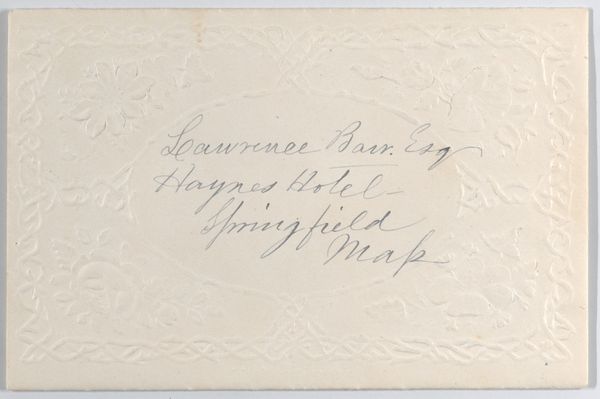 Lawrence Barr. Esq
Haynes Hotel
Springfield
Maſs